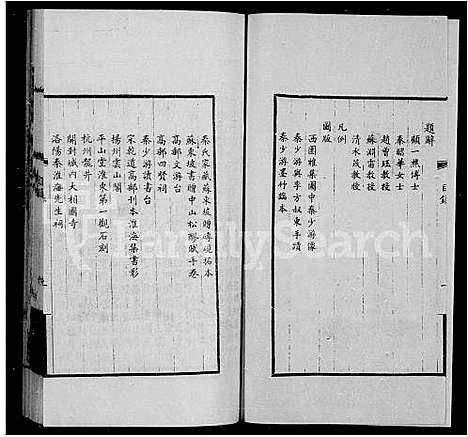 題辭
顧一樵博士
秦昭華女士
趙曾珏教授
蘇淵雷教授
清水茂教授
凡例
圖版
西園雅集圖中秦少游像
秦少游與李方叔東手蹟
秦少游墨竹臨本
目錄
一
秦氏家藏蘇東坡贈硯拓本
蘇東坡書贈中山松醪賦手卷
高郵文游台
高郵四賢祠
秦少游讀書台
宋乾道高郵刊本淮海集書影
揚州雲山閣
平山堂淮東第一觀石刻
杭州龍井
開封城內大相國寺
洛陽秦淮海先生祠
FamilySearch